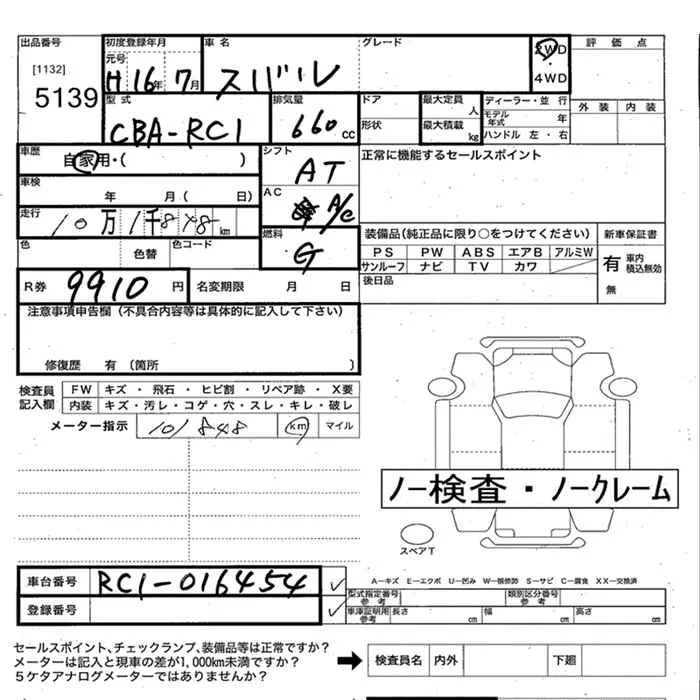 出品番号 初度登録年月 車名 グレード 2WD 評価点
[1132] 元号 4WD
5139 H16年7月 スバル
型式 排気量 ドア 最大定員 人 ディーラー・並行 外装 内装
CBA-RC1 660cc 形状 最大積載 kg モデル年式 年
ハンドル 左・右
車歴 自家用・( ) シフト AT 正常に機能するセールスポイント
車検 年 月( 日) AC A/C
走行 10万1千848km 装備品(純正品に限り○をつけてください) 新車保証書
色 色替 色コード 燃料 G PS PW ABS エアB アルミW 有 車内積込無効
サンルーフ ナビ TV カワ 無
R券 9910円 名変期限 月 日 後日品
注意事項申告欄(不具合内容等は具体的に記入して下さい)
修復歴 有(箇所 )
検査員記入欄 FW キズ・飛石・ヒビ割・リペア跡・X要
内装 キズ・汚レ・コゲ・穴・スレ・キレ・破レ
メーター指示 101848 km マイル
ノー検査・ノークレーム
スペアT
A-キズ E-エクボ U-凹み W-板修跡 S-サビ C-腐食 XX-交換済
車台番号 RC1-016454 型式指定番号 参考 類別区分番号 参考
登録番号 車庫証明用 参考 長さ cm 幅 cm 高さ cm
セールスポイント、チェックランプ、装備品等は正常ですか?
メーターは記入と現車の差が1,000km未満ですか? 検査員名 内外 下廻
5ケタアナログメーターではありませんか?